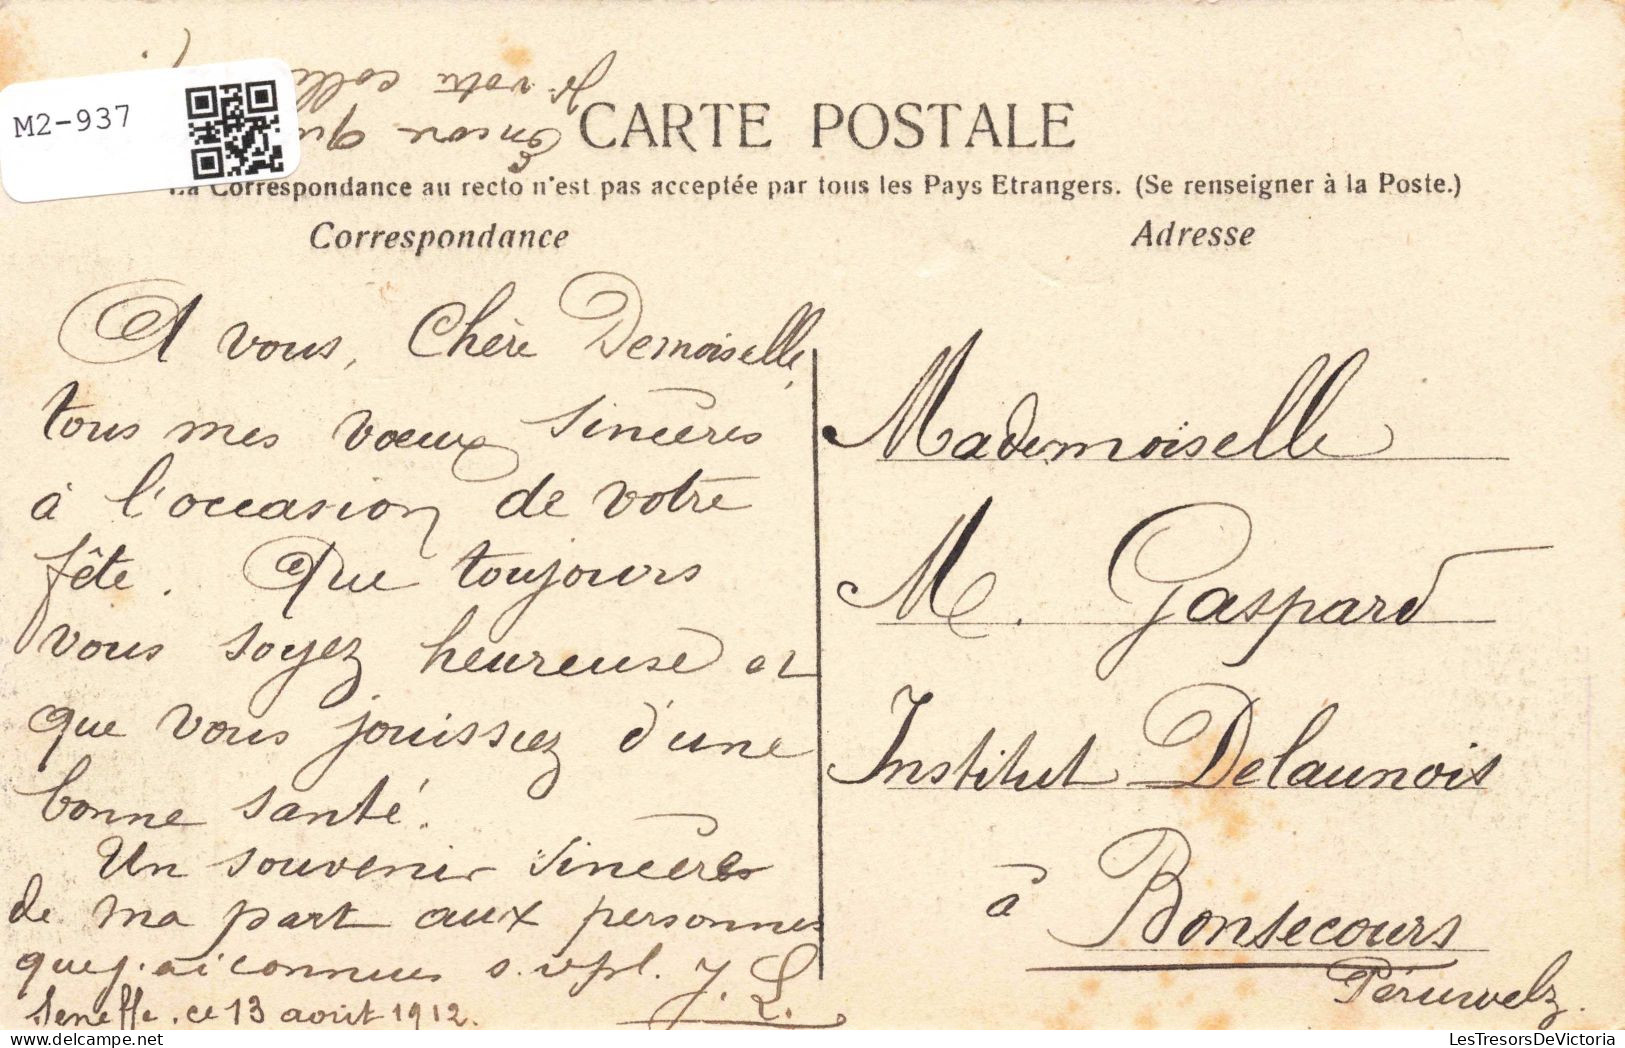 M2-937
Encore
votre
CARTE POSTALE
La Correspondance au recto n'est pas acceptée par tous les Pays Etrangers. (Se renseigner à la Poste.)
Correspondance
Adresse
A vous, Chère Demoiselle,
tous mes vœux sincères
à l'occasion de votre
fête. Que toujours
vous soyez heureuse et
que vous jouissiez d'une
bonne santé.
Un souvenir sincère
de ma part aux personnes
que j'ai connues s.v.pl. J. L.
Seneffe, ce 13 août 1912.
Mademoiselle
M. Gaspard
Institut Delaunois
à Bonsecours
Péruwelz.
LesTresorsDeVictoria